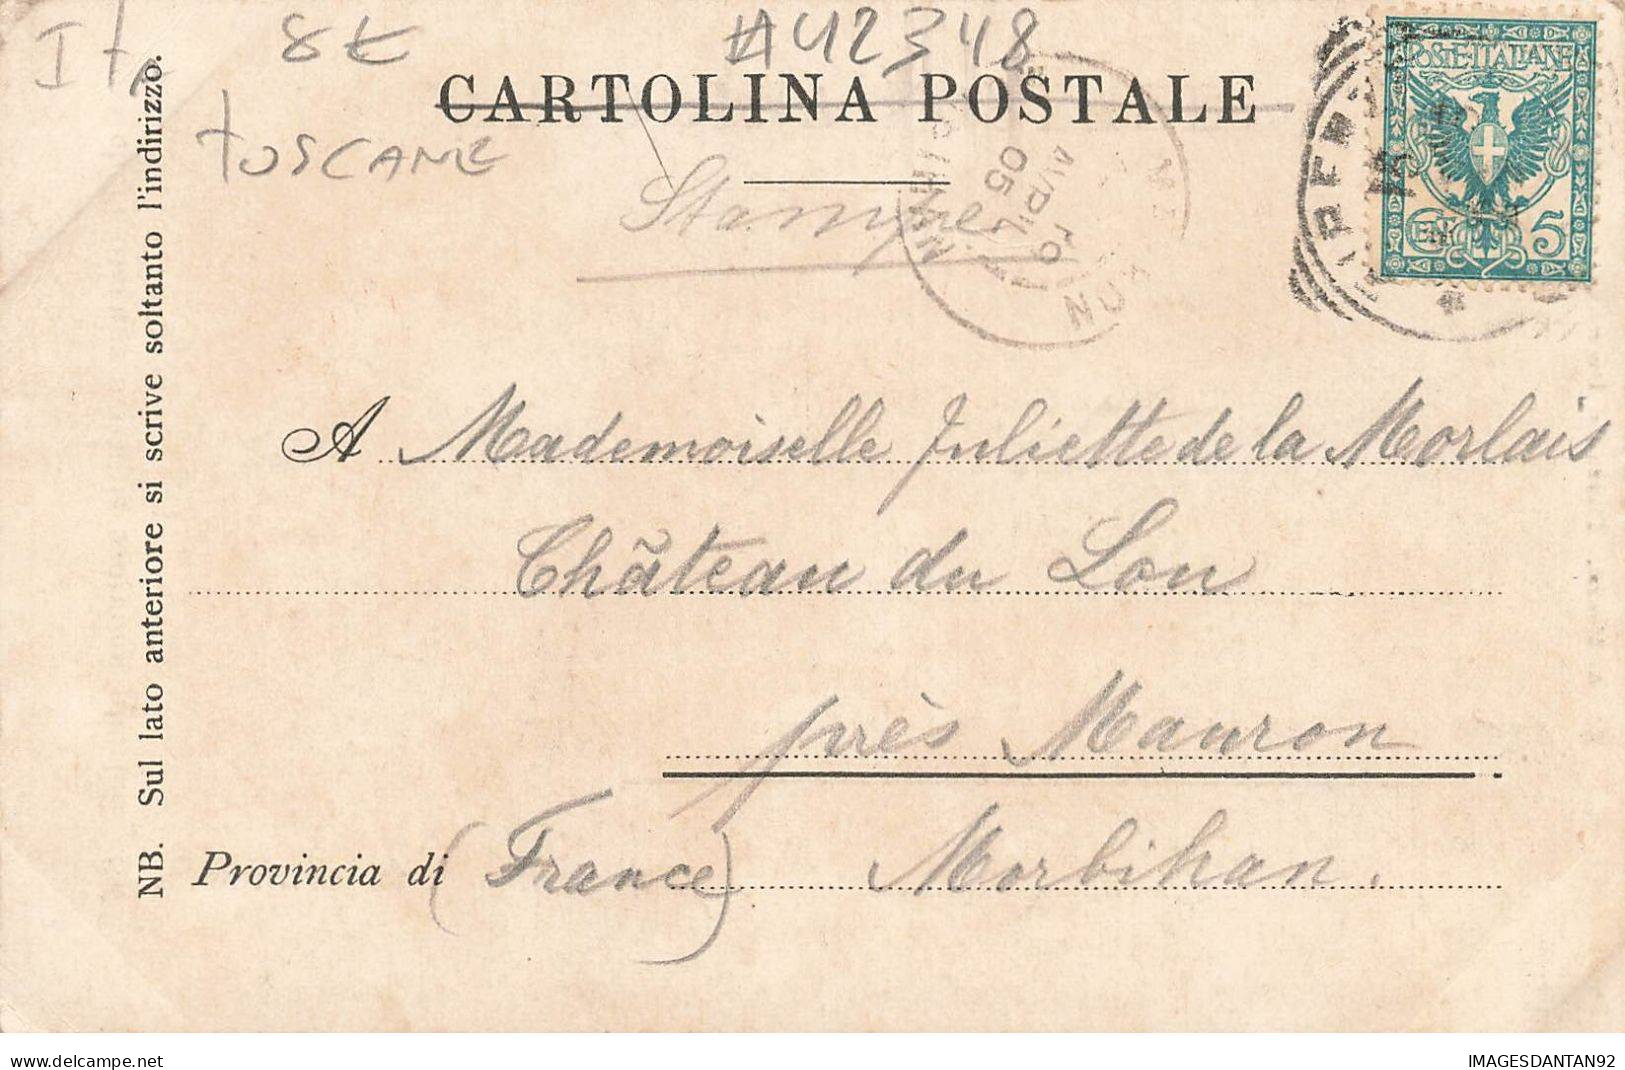 It
8€
#42348
CARTOLINA POSTALE
TOSCANE
Stampe
POSTE ITALIANE
CEN 5
FIRENZE
AVRIL
05
MORBIHAN
NB. Sul lato anteriore si scrive soltanto l'indirizzo.
A Mademoiselle Juliette de la Morlais
Château du Lou
près Mauron
Provincia di (France) Morbihan.
delcampe.net
IMAGESDANTAN92